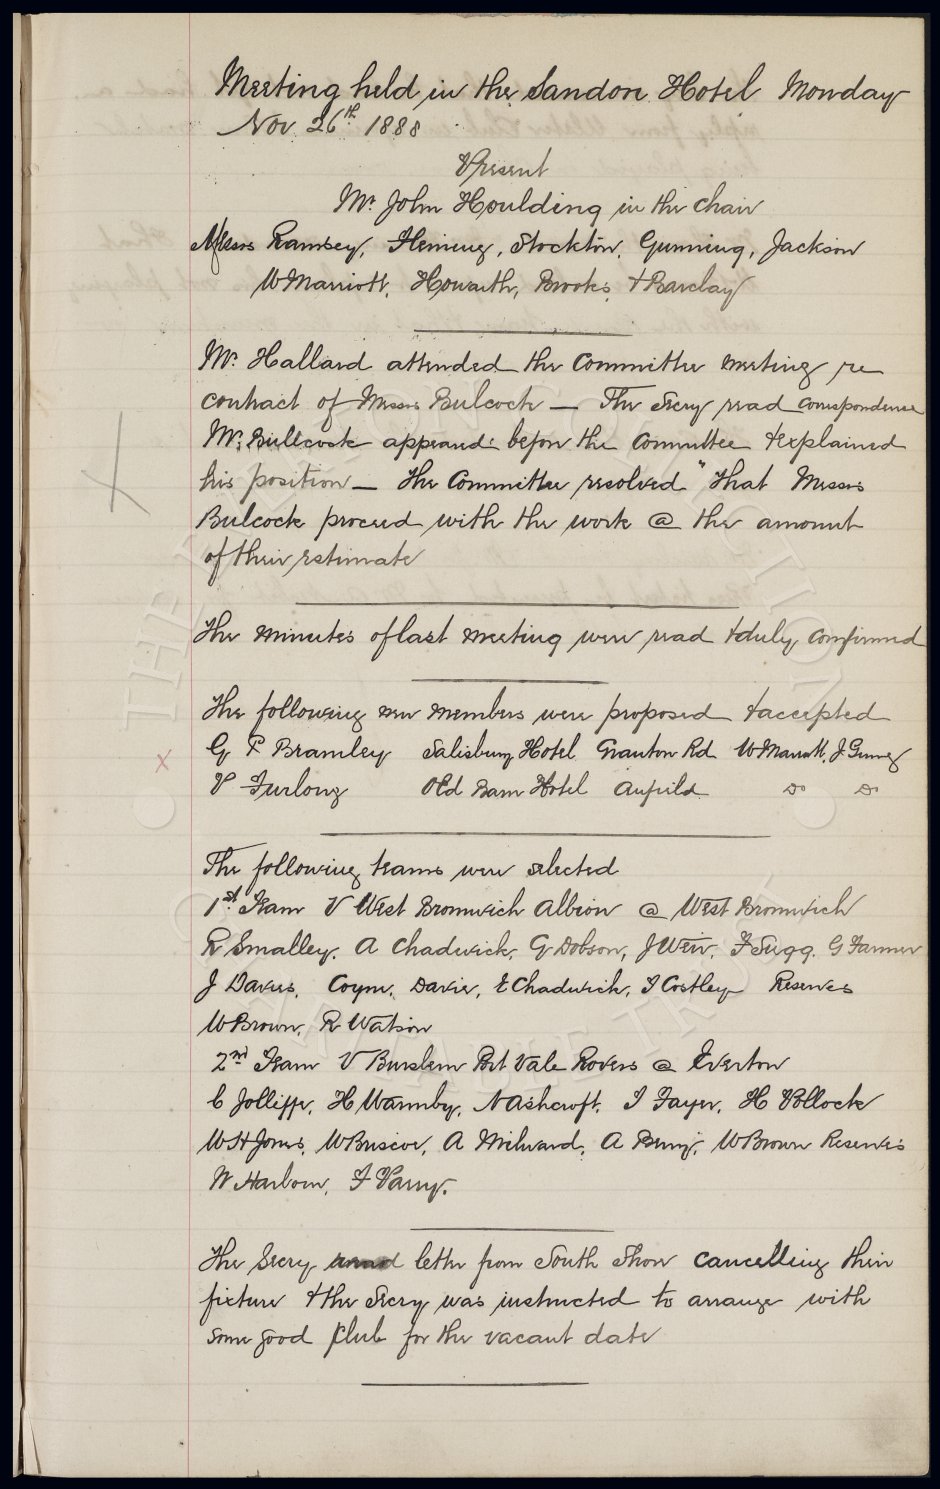 Meeting held in the Sandon Hotel Monday
Nov 26th 1888
Present
Mr John Houlding in the chair
Messrs Ramsey, Fleming, Stockton, Gunning, Jackson
W Marriott, Howarth, Brooks, & Barclay
Mr Hallard attended the Committee meeting re
contract of Messrs Bulcock — The Secry read correspondence
Mr Bullcock appeared before the Committee & explained
his position — the Committee resolved "that Messrs
Bulcock proceed with the work @ the amount
of their estimate
The minutes of last meeting were read & duly confirmed
The following new members were proposed & accepted
G P Bramley Salisbury Hotel Granton Rd W Marriott, J
P Furlong Old Barn Hotel Anfield Do Do
The following teams were selected
1st Team V West Bromwich Albion @ West Bromwich
R Smalley, A Chadwick, G Dobson, J Weir, F Sugg, G Farmer
J Davies, Coyne, Davies, E Chadwick, J Costley Reserves
W Brown, R Watson
2nd Team V Burslem Port Vale Rovers @ Everton
C Jolliffe, H Warmby, N Ashcroft, J Fayer, H Pollock
W H Jones, W Briscoe, A Milward, A Berry, W Brown Reserves
W Harbour, F Parry.
The Secry read letter from South Shore cancelling their
fixture & the Secry was instructed to arrange with
some good Club for the vacant date
THE EVERTON COLLECTION
CHARITABLE TRUST